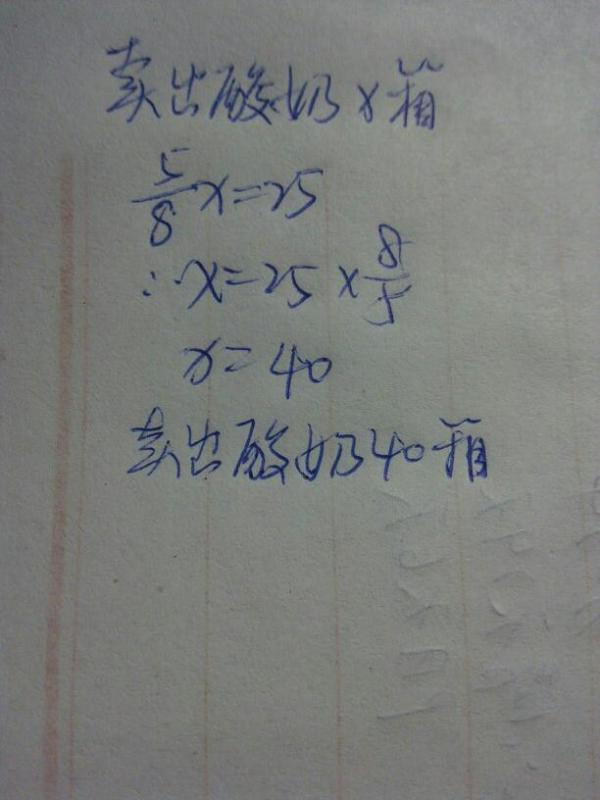 卖出酸奶x箱
5/8 x=25
∴x=25×8/5
x=40
卖出酸奶40箱